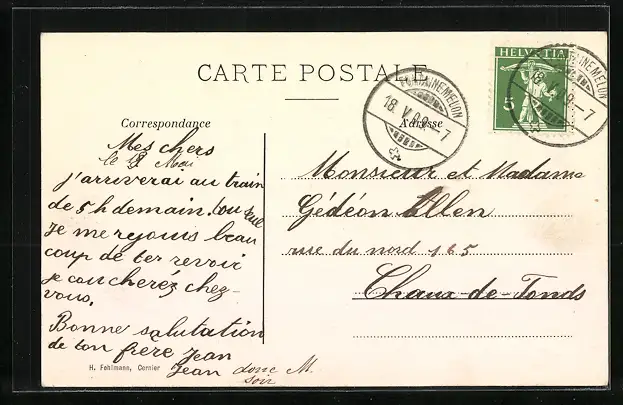 CARTE POSTALE
Correspondance
Mes chers
le Mai
j'arriverai au train
de 5 h demain.
Je me rejouis beau
coup de ter revoir
je coucherez chez-
vous.
Bonne salutation
de ton frère Jean
Jean donc M.
soir
H. Fehlmann, Cernier
Adresse
Monsieur et Madame
Gédéon Ellen
rue du nord 165
Chaux-de-Fonds
HELVETIA
5
FONTAINEMELON
18. V. 09. - 7
FONTAINEMELON
18. V. 09. - 7